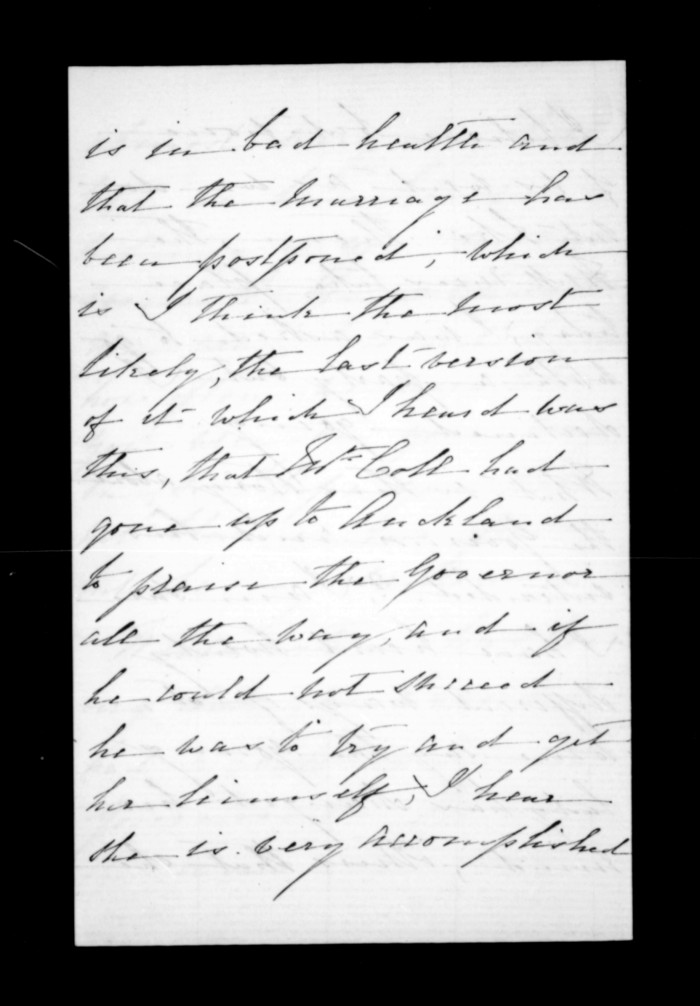 is in bad health and
that the marriage has
been postponed, which
is I think the most
likely, the last version
of it which I heard was
this, that Mr Colt had
gone up to Auckland
to praise the Governor
all the way, and if
he could not succeed
he was to try and get
her himself, I hear
she is very accomplished